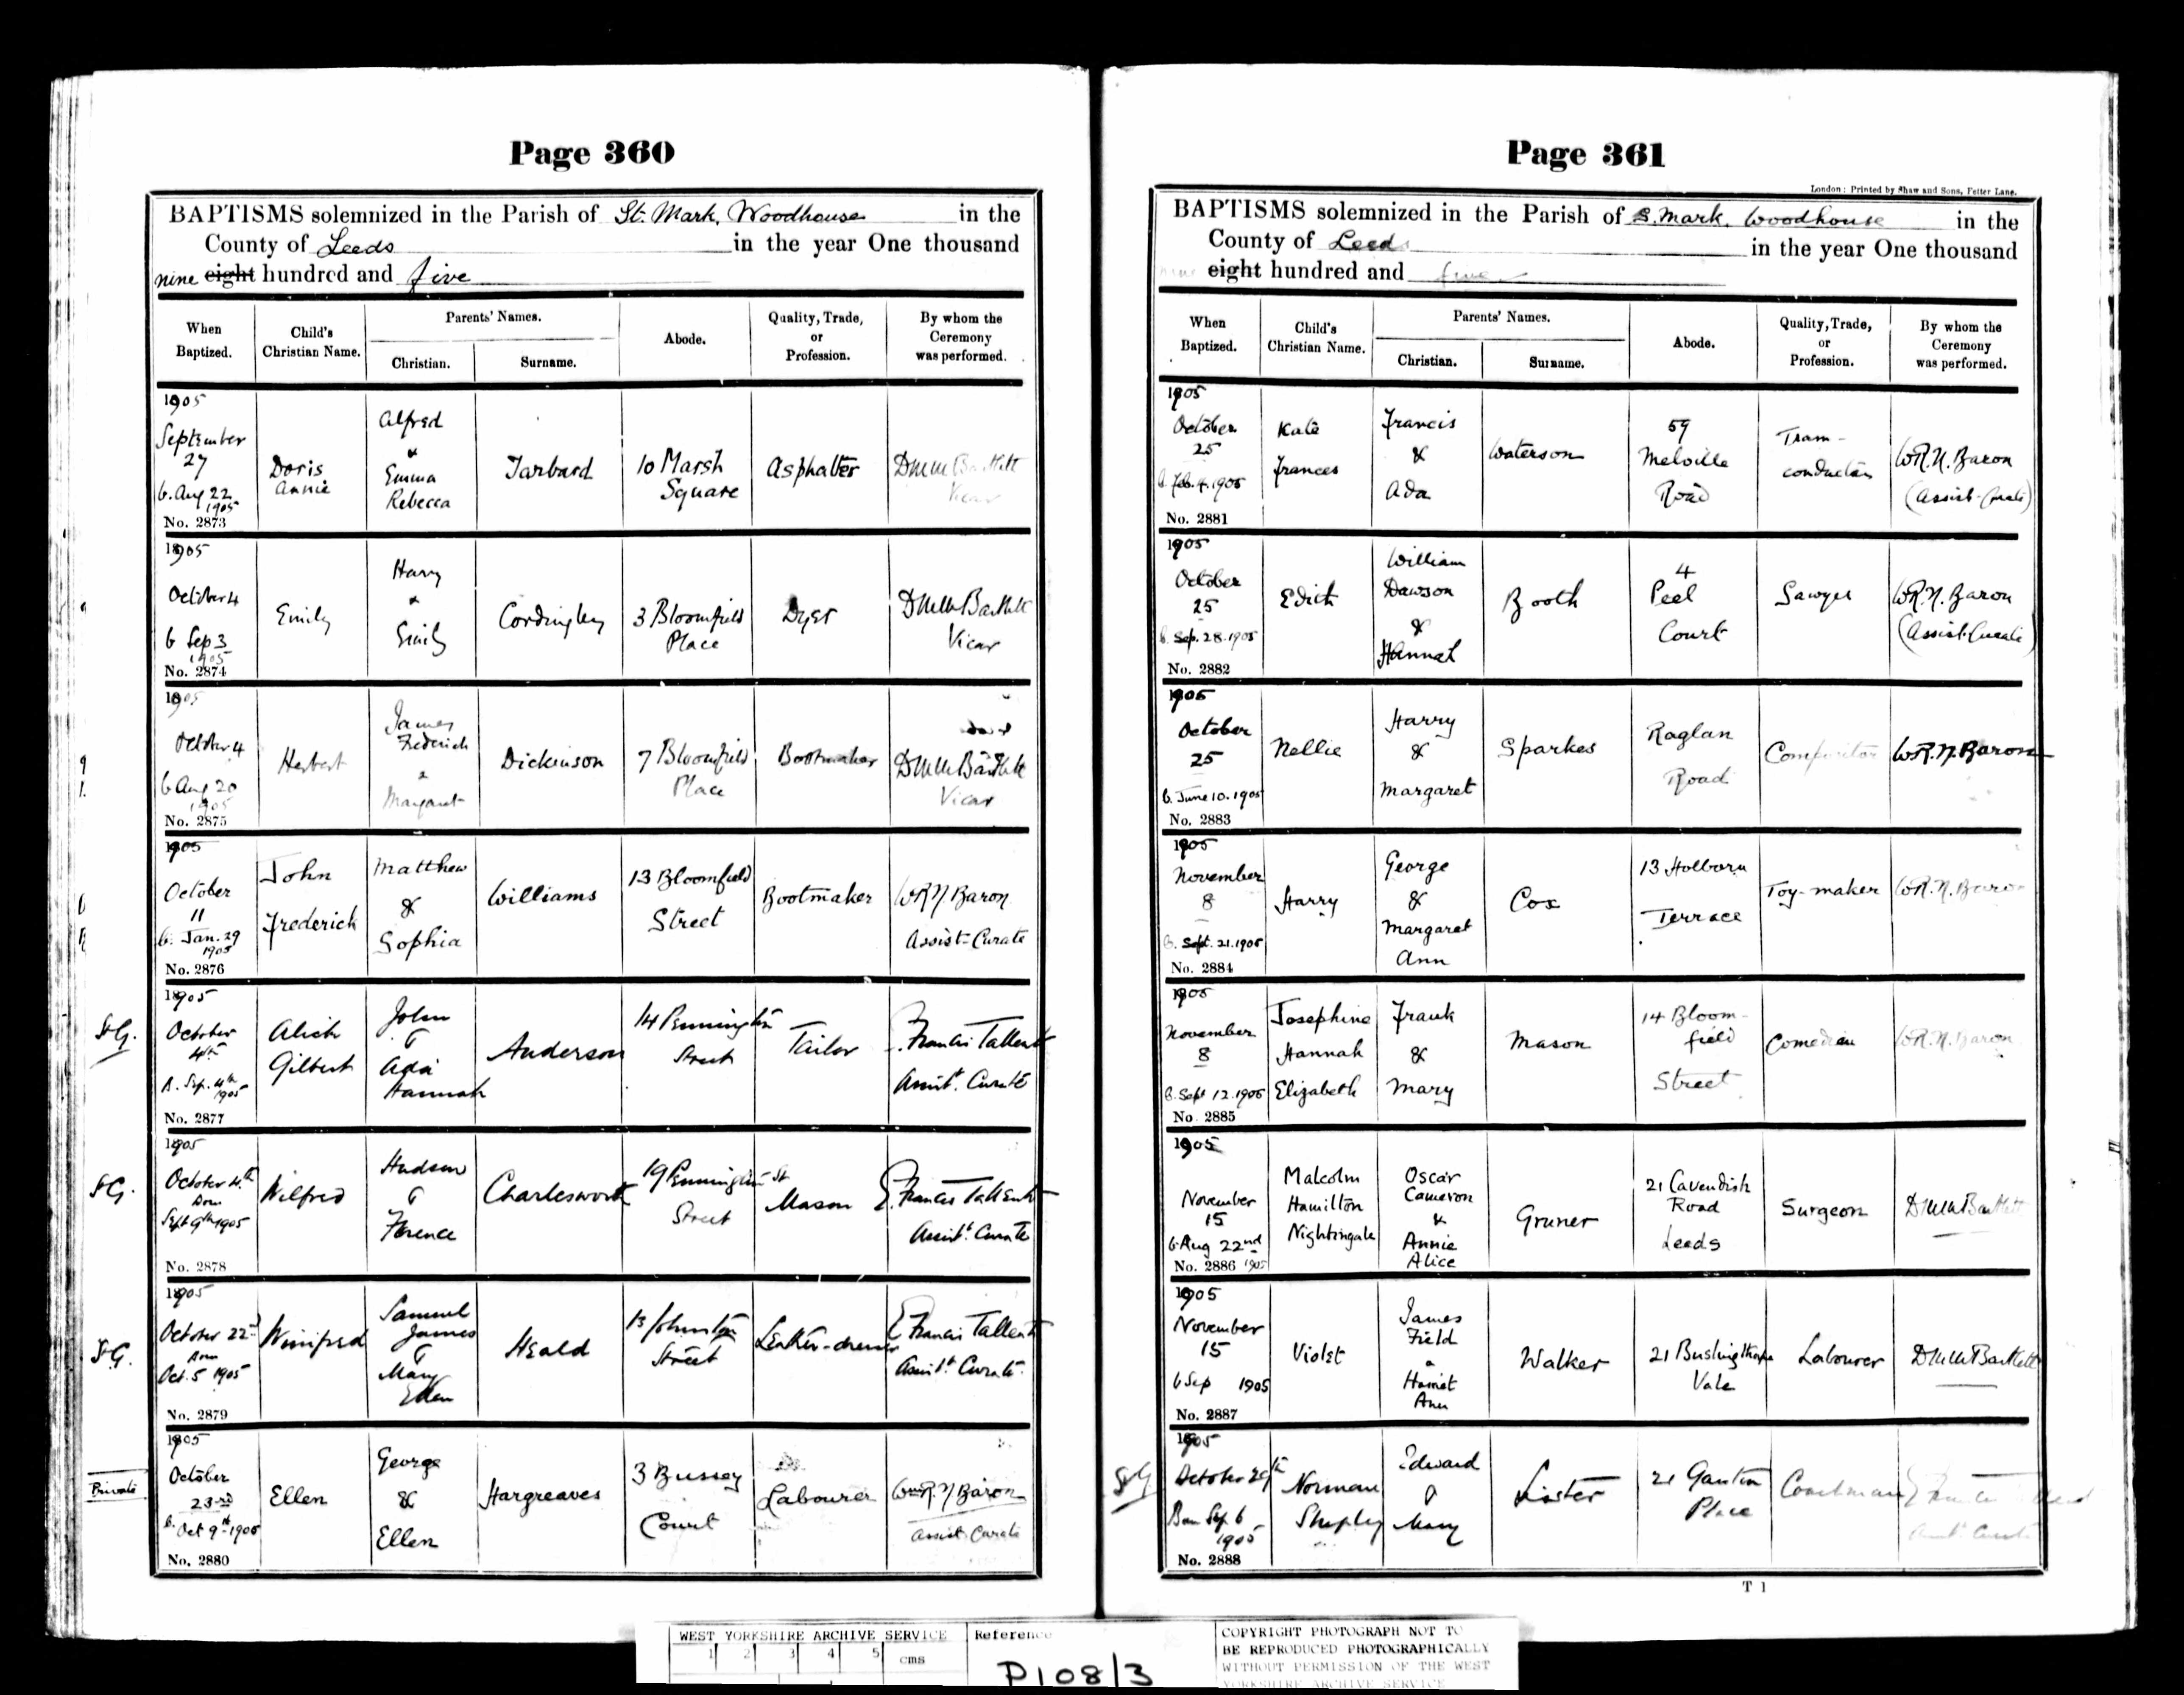 Page 360
BAPTISMS solemnized in the Parish of St. Mark, Woodhouse in the
County of Leeds in the year One thousand
nine eight hundred and five
When Baptized. Child's Christian Name. Parents' Names. Christian. Surname. Abode. Quality, Trade, or Profession. By whom the Ceremony was performed.
1905
September 27
b. Aug 22 1905
No. 2873
Doris Annie
Alfred & Emma Rebecca
Tarbard
10 Marsh Square
Asphalter
DMW Bartlett
Vicar
1905
October 4
b Sep 3 1905
No. 2874
Emily
Harry & Emily
Cordingley
3 Bloomfield Place
Dyer
DMW Bartlett
Vicar
1905
October 4
b Aug 20 1905
No. 2875
Herbert
James Frederick & Margaret
Dickinson
7 Bloomfield Place
Bootmaker
DMW Bartlett
Vicar
1905
October 11
b. Jan. 29 1905
No. 2876
John Frederick
Matthew & Sophia
Williams
13 Bloomfield Street
Bootmaker
W R N Baron
Assist-Curate
St G.
1905
October 4th
B. Sep. 4th 1905
No. 2877
Alick Gilbert
John & Ada Hannah
Anderson
14 Pennington Street
Tailor
E. Francis Tallents
Assist. Curate
St G.
1905
October 4th
Born Sept 9th 1905
No. 2878
Wilfred
Hudson & Florence
Charlesworth
19 Pennington St
Street
Mason
E. Francis Tallents
Assist. Curate
St G.
1905
October 22nd
Born Oct. 5 1905
No. 2879
Winifred
Samuel James & Mary Ellen
Heald
13 Johnston Street
Leather-dresser
E Francis Tallents
Assist Curate.
Private
1905
October 23rd
b. Oct 9th 1905
No. 2880
Ellen
George & Ellen
Hargreaves
3 Bussey Court
Labourer
W R N Baron
Assist Curate
Page 361
London: Printed by Shaw and Sons, Fetter Lane.
BAPTISMS solemnized in the Parish of S. Mark, Woodhouse in the
County of Leeds in the year One thousand
nine eight hundred and five
When Baptized. Child's Christian Name. Parents' Names. Christian. Surname. Abode. Quality, Trade, or Profession. By whom the Ceremony was performed.
1905
October 25
b. Feb. 4. 1905
No. 2881
Kate Frances
Francis & Ada
Waterson
59 Melville Road
Tram-conductor
W.R.N. Baron
(Assist-Curate)
1905
October 25
b. Sep. 28. 1905
No. 2882
Edith
William Dawson & Hannah
Booth
4 Peel Court
Sawyer
W.R.N. Baron
(Assist Curate)
1905
October 25
b. June 10. 1905
No. 2883
Nellie
Harry & Margaret
Sparkes
Raglan Road
Compositor
W.R.N. Baron
1905
November 8
B. Sept. 21. 1905
No. 2884
Harry
George & Margaret Ann
Cox
13 Holborn Terrace
Toy-maker
W.R.N. Baron
1905
November 8
B. Sept 12. 1905
No. 2885
Josephine Hannah Elizabeth
Frank & Mary
Mason
14 Bloomfield Street
Comedian
W.R.N. Baron
1905
November 15
b Aug 22nd 1905
No. 2886
Malcolm Hamilton Nightingale
Oscar Cameron & Annie Alice
Gruner
21 Cavendish Road Leeds
Surgeon
DMW Bartlett
1905
November 15
b Sep 1905
No. 2887
Violet
James Field & Harriet Ann
Walker
21 Buslingthorpe Vale
Labourer
DMW Bartlett
St G
1905
October 29th
Born Sep 6 1905
No. 2888
Norman Shepley
Edward & Mary
Lister
21 Ganton Place
Coachman
T 1
WEST YORKSHIRE ARCHIVE SERVICE
1 2 3 4 5 cms
Reference
P108/3
COPYRIGHT PHOTOGRAPH NOT TO
BE REPRODUCED PHOTOGRAPHICALLY
WITHOUT PERMISSION OF THE WEST
YORKSHIRE ARCHIVE SERVICE